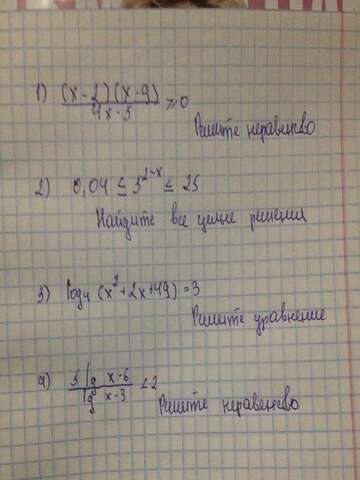 1) (x-2)(x-9) / 4x-5 ≥ 0
Решите неравенство
2) 0,04 ≤ 5^{2-x} ≤ 25
Найдите все целые решения
3) log₄ (x²+2x+49) = 3
Решите уравнение
4) 5 lg x-6 / lg x-3 < 2
Решите неравенство